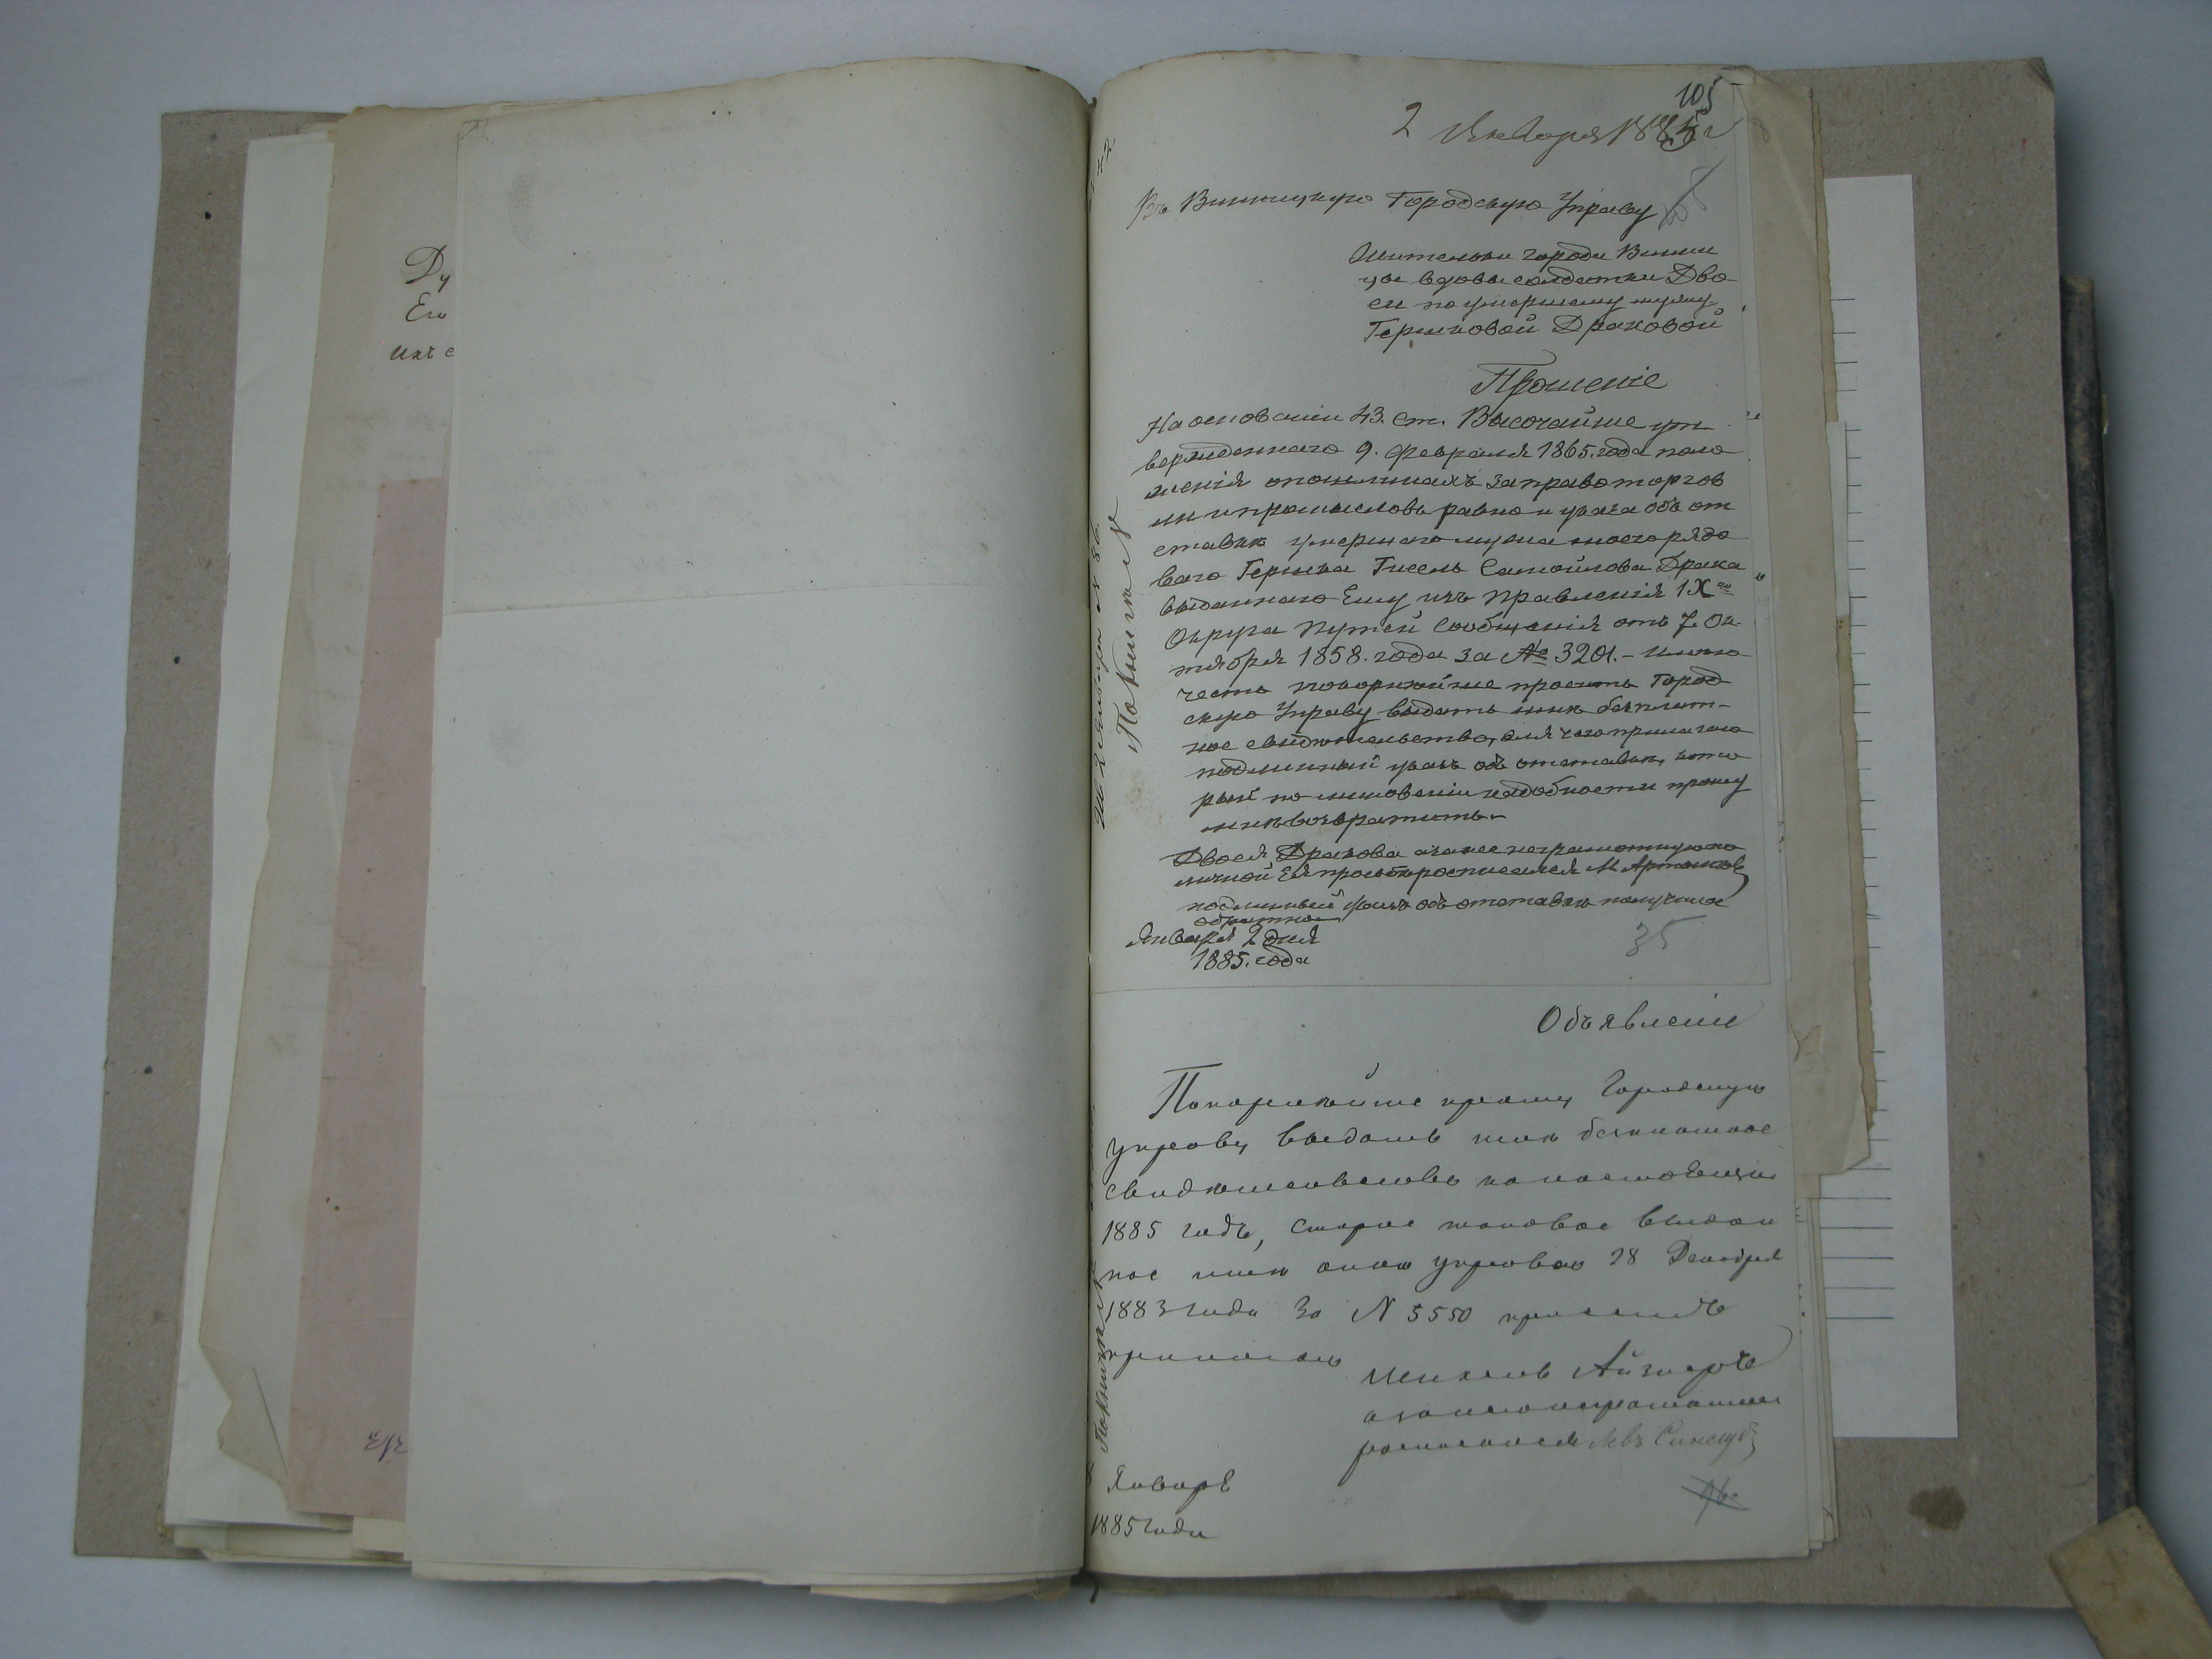 Ду
Его
ихъ с
105
2 Января 1885 г
Въ Винницкую Городскую Управу
Жительки города Винни
цы вдовы солдатки Дво
си по умершему мужу
Гершковой Драковой
Прошеніе
На основаніи 43. ст. Высочайше ут
вержденнаго 9. Февраля 1865. года поло
женія о пошлинахъ за право торгов
ли и промысловъ равно и указа объ от
ставкѣ умершаго мужа моего рядо
ваго Гершка Гисель Самойлова Драка
выданнаго Ему изъ Правленія IX го
Округа Путей Сообщенія отъ 7. Ок
тября 1858. года за № 3201. - Имѣю
честь покорнѣйше просить Город
скую Управу выдать мнѣ безплат-
ное свидѣтельство, для чего прилагаю
подлинный указъ объ отставкѣ, кото
рый по минованіи надобности прошу
мнѣ возвратить.
Двося Дракова а за нее неграмотную по
личной Ея просьбѣ росписался М.
подлинный указъ объ отставкѣ получила
обратно
Января 2 дня
1885. года
35
Объявленіе
Покорнѣйше прошу Городскую
управу выдать мнѣ безплатное
свидѣтельство на настоящій
1885 годъ, старое таковое выдан
ное мнѣ оною управою 28 Декабря
1883 года за N 5550 при семъ
прилагаю
Айзнеръ
а за него неграмотнаго
росписался Левъ
Январѣ
1885 года